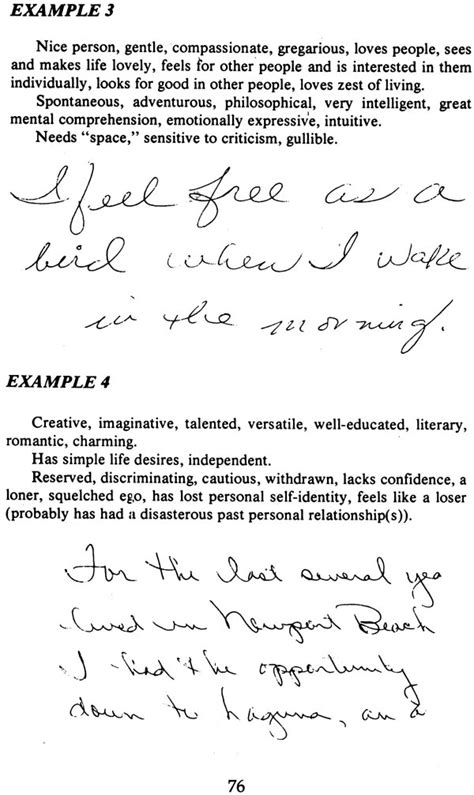 EXAMPLE 3
Nice person, gentle, compassionate, gregarious, loves people, sees
and makes life lovely, feels for other people and is interested in them
individually, looks for good in other people, loves zest of living.
Spontaneous, adventurous, philosophical, very intelligent, great
mental comprehension, emotionally expressive, intuitive.
Needs “space,” sensitive to criticism, gullible.
I feel free as a
bird when I wake
in the morning.
EXAMPLE 4
Creative, imaginative, talented, versatile, well-educated, literary,
romantic, charming.
Has simple life desires, independent.
Reserved, discriminating, cautious, withdrawn, lacks confidence, a
loner, squelched ego, has lost personal self-identity, feels like a loser
(probably has had a disasterous past personal relationship(s)).
For the last several yea
lived in Newport Beach
I had the opportunity
down to Laguna, an a
76